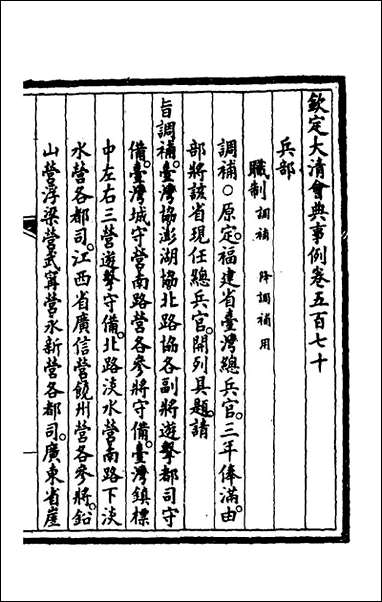 欽定大清會典事例卷五百七十
兵部
職制 調補 降調補用
調補○原定。福建省臺灣總兵官。三年俸滿。由
部將該省現任總兵官。開列具題。請
旨調補。臺灣協澎湖協北路協各副將遊擊都司守
備。臺灣城守營南路營各參將守備。臺灣鎮標
中左右三營遊擊守備。北路淡水營南路下淡
水營各都司。江西省廣信營饒州營各參將。鉛
山營浮梁營武寧營永新營各都司。廣東省崖